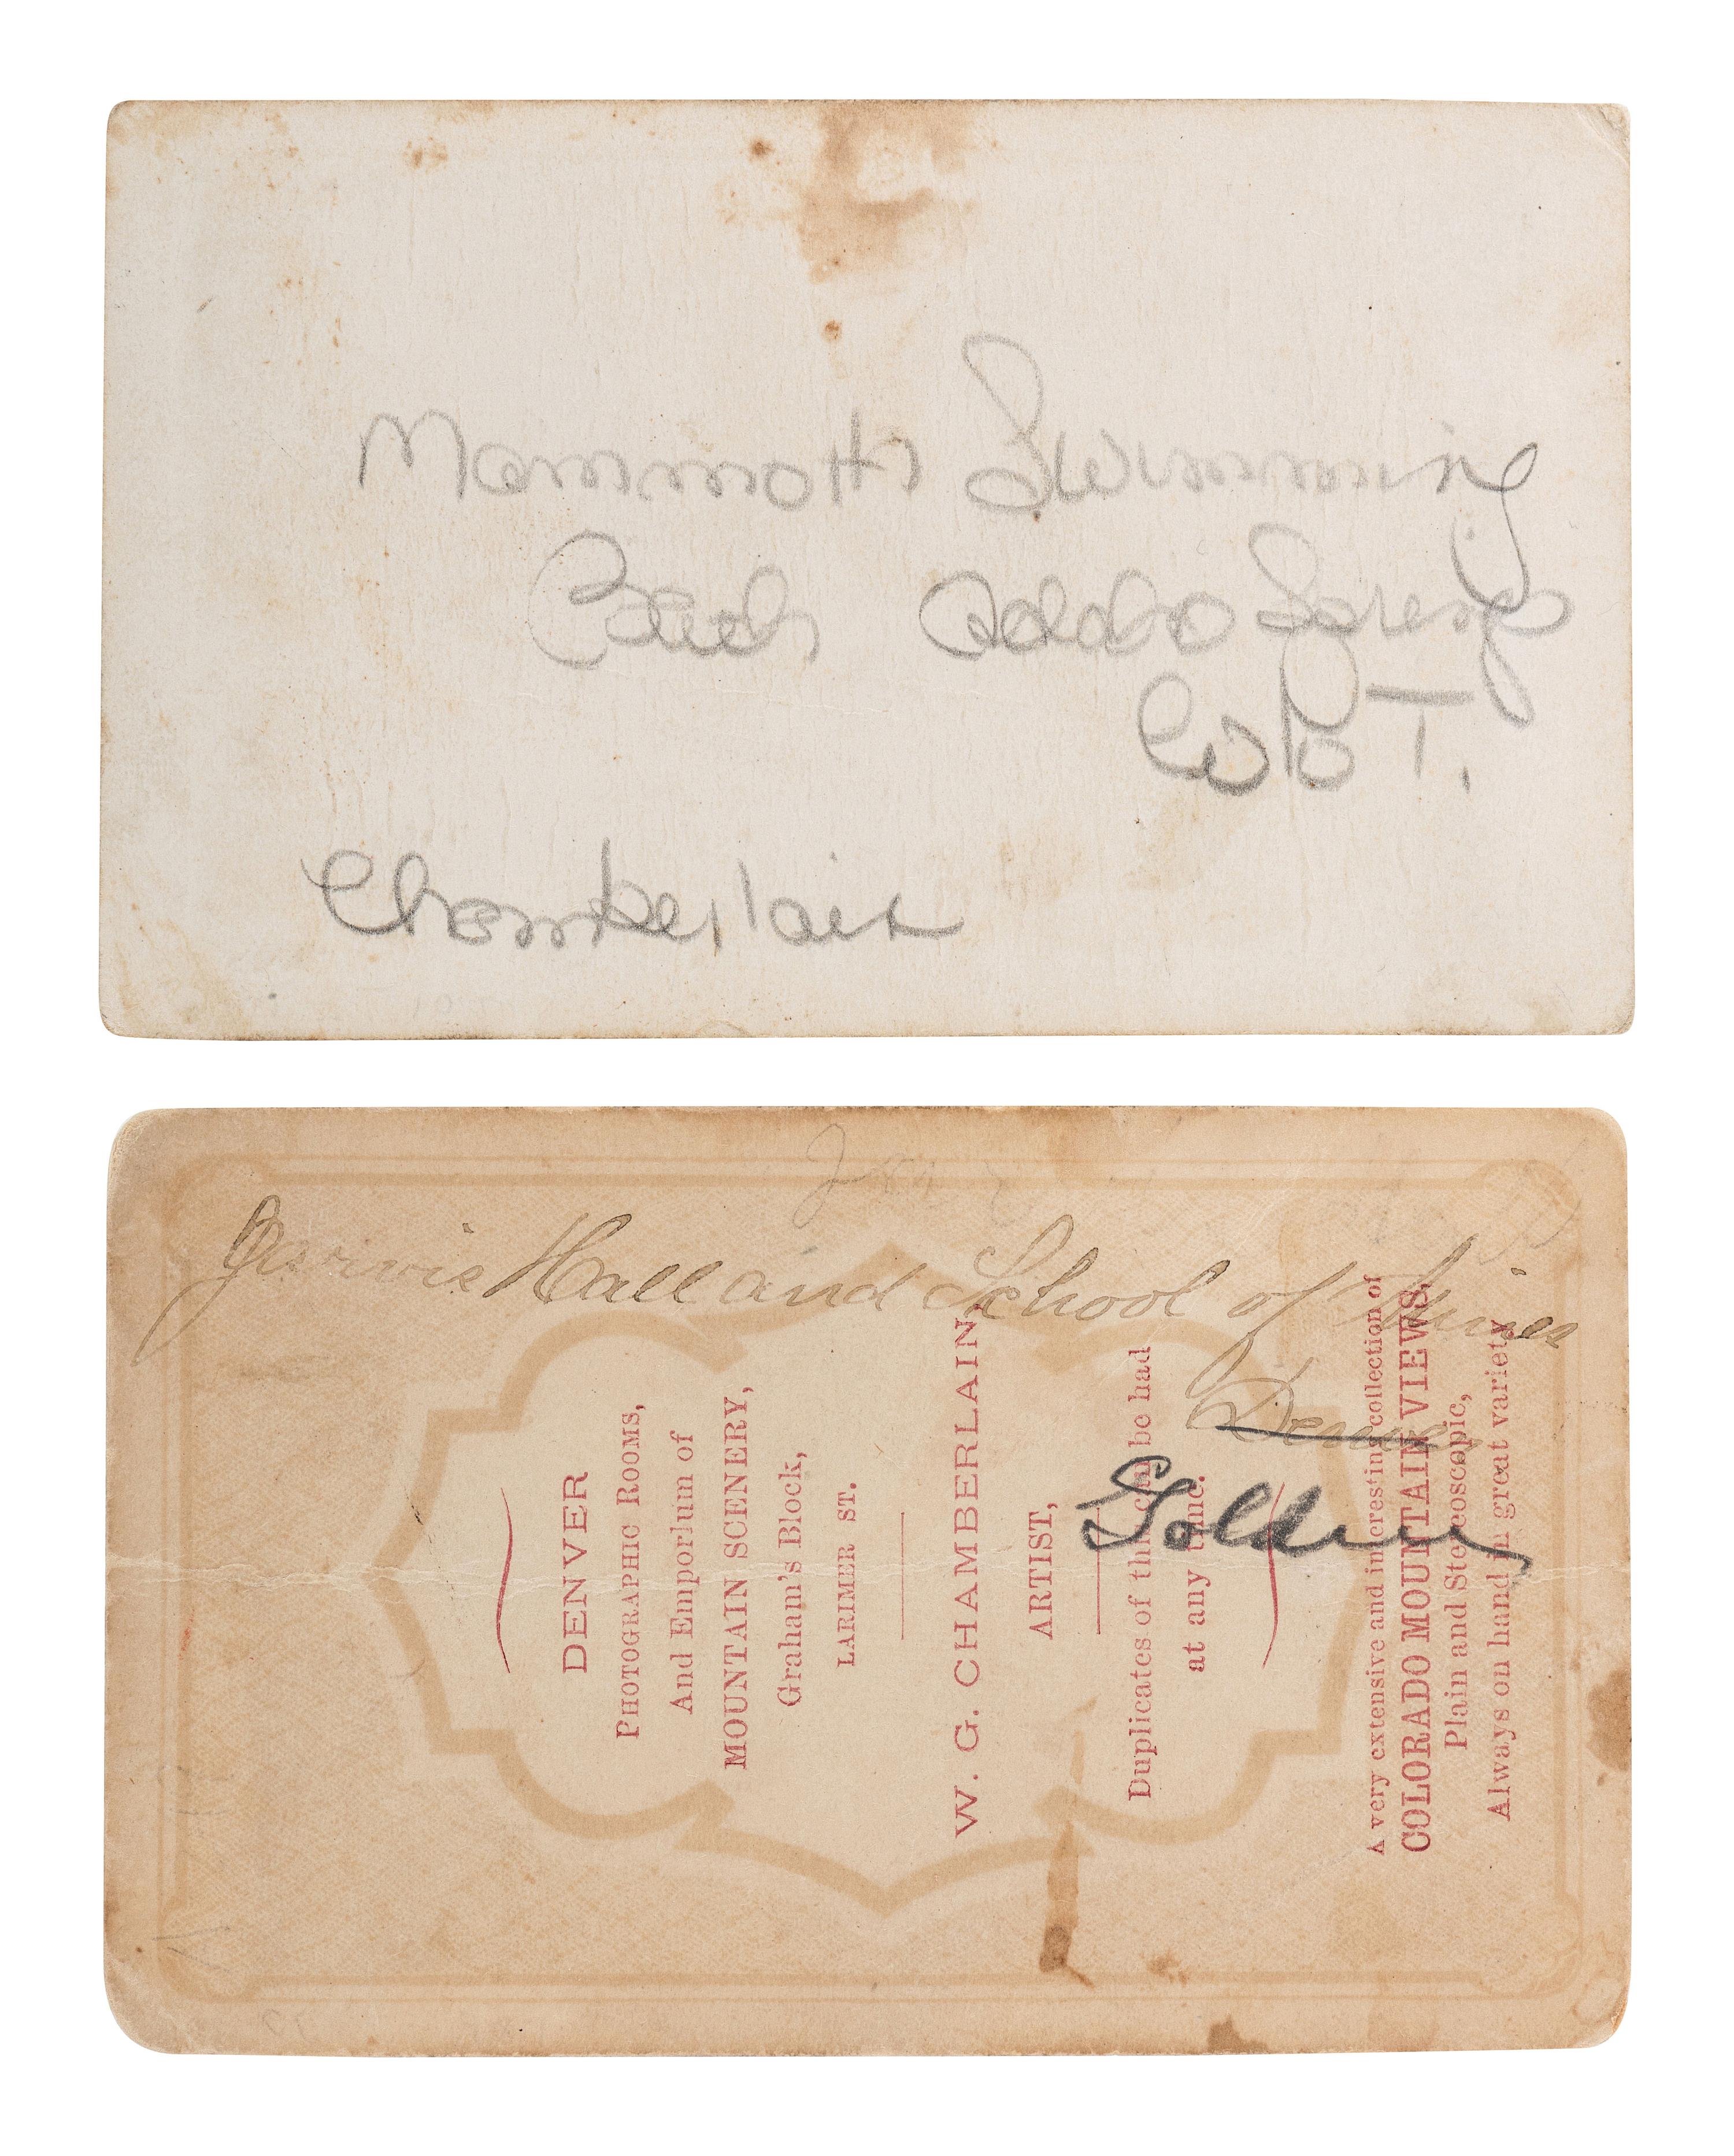 Mammoth Swimming
Bath Idaho Springs
Colo T.
Chamberlain
Jarvis Hall and School of Mines
Denver
Golden
DENVER
PHOTOGRAPHIC ROOMS,
And Emporium of
MOUNTAIN SCENERY,
Graham's Block,
LARIMER ST.
W. G. CHAMBERLAIN,
ARTIST,
Duplicates of this can be had
at any time.
A very extensive and interesting collection of
COLORADO MOUNTAIN VIEWS,
Plain and Stereoscopic,
Always on hand in great variety